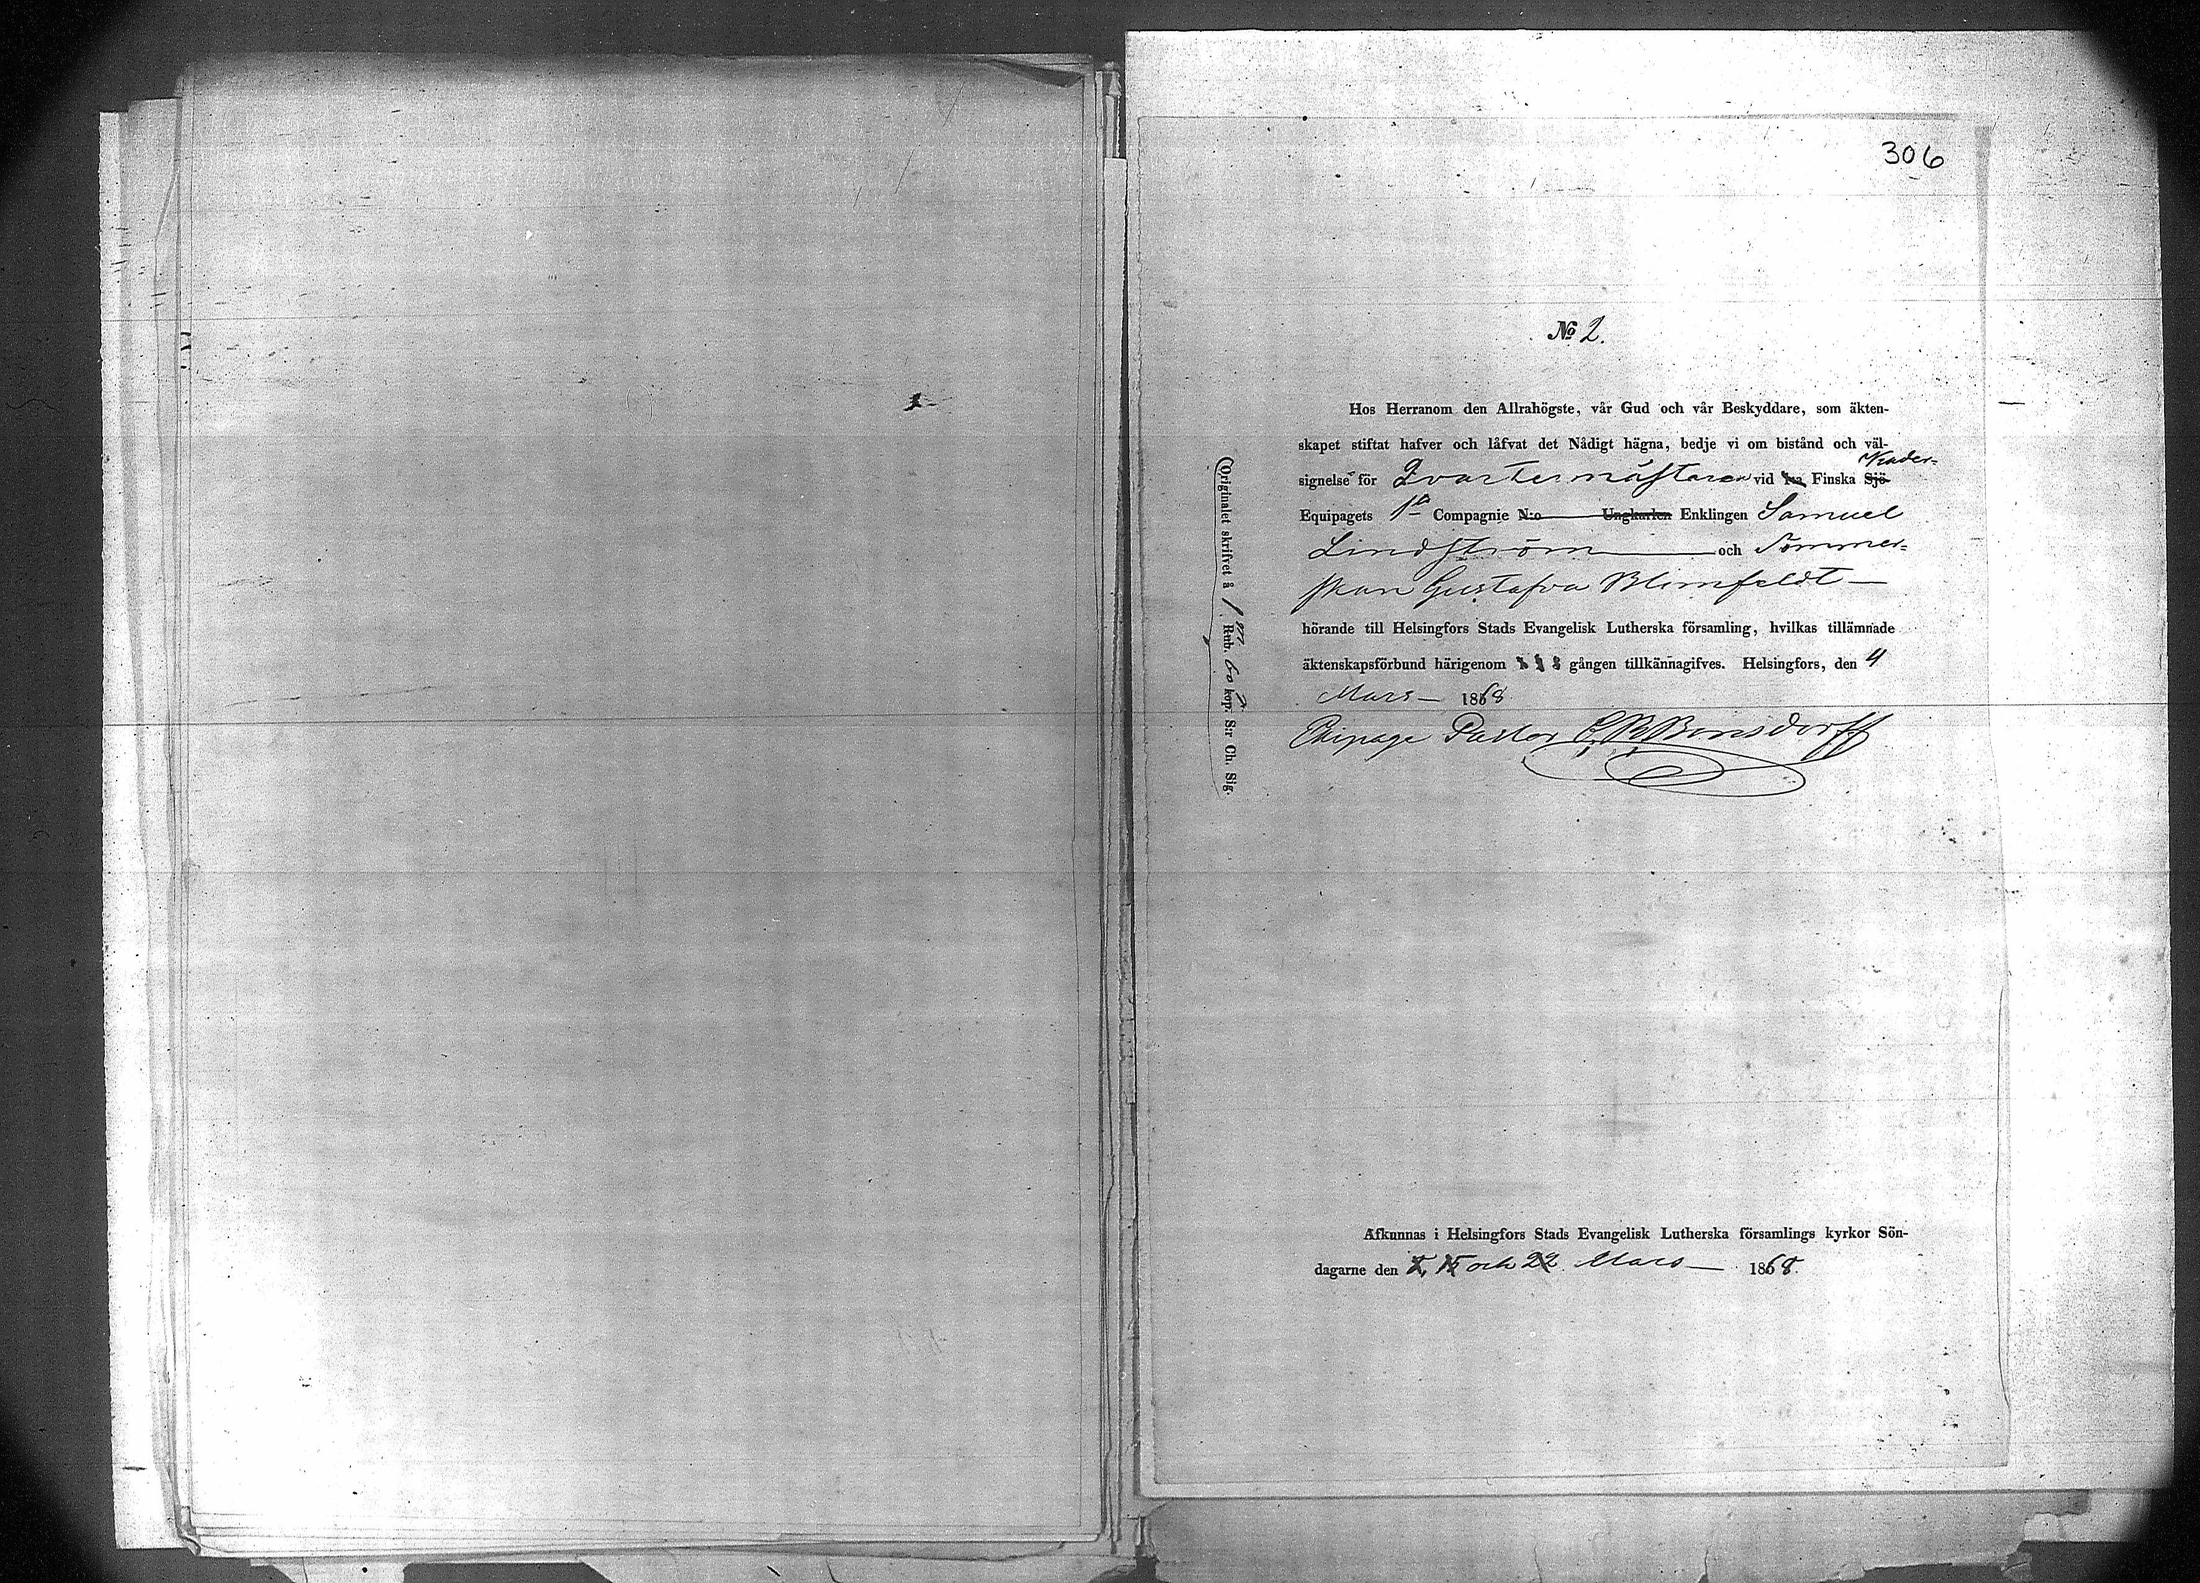 306
No 2.
Hos Herranom den Allrahögste, vår Gud och vår Beskyddare, som äkten-
skapet stiftat hafver och låfvat det Nådigt hägna, bedje vi om bistånd och väl-
signelse för Qvartermästaren vid 1:a Finska Sjö- Kader-
Equipagets 1a Compagnie N:o Ungkarlen Enklingen Samuel
Lindström och Sömmer-
skan Gustafva Blomfeldt
hörande till Helsingfors Stads Evangelisk Lutherska församling, hvilkas tillämnade
äktenskapsförbund härigenom gången tillkännagifves. Helsingfors, den 4
Mars 1868
Ekipage Pastor C. R. Bonsdorff
(Originalet skrifvet å 1 Rub. 60 kop. S:r Ch. Sig.
Afkunnas i Helsingfors Stads Evangelisk Lutherska församlings kyrkor Sön-
dagarne den 8, 15 och 22 Mars 1868.